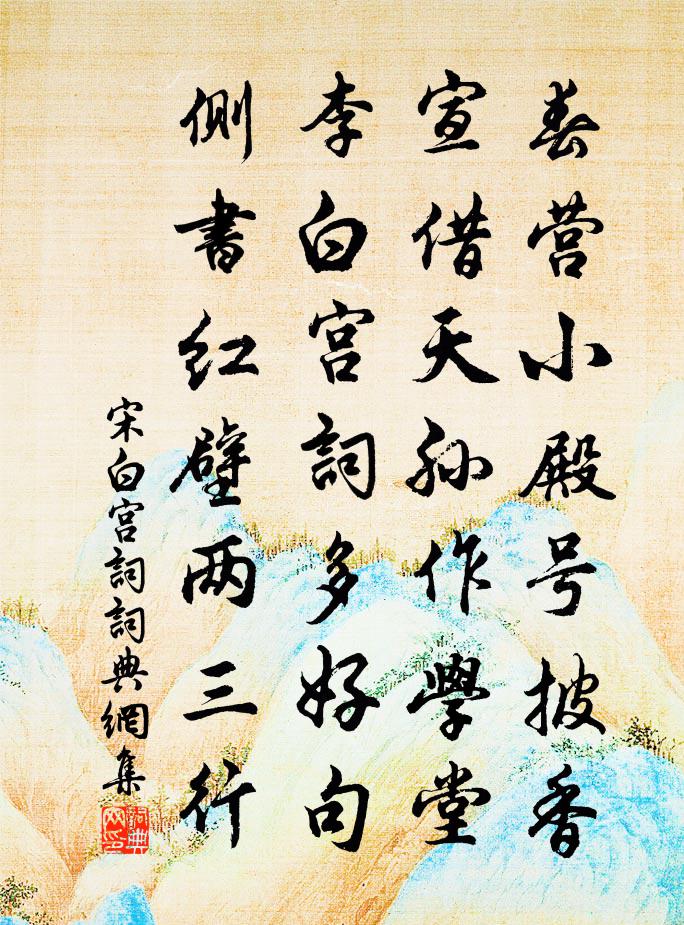 春营小殿号披香
宣借天孙作學堂
李白宫詞多好句
侧書红壁两三行
宋白宫詞詞典網集
詞典网印